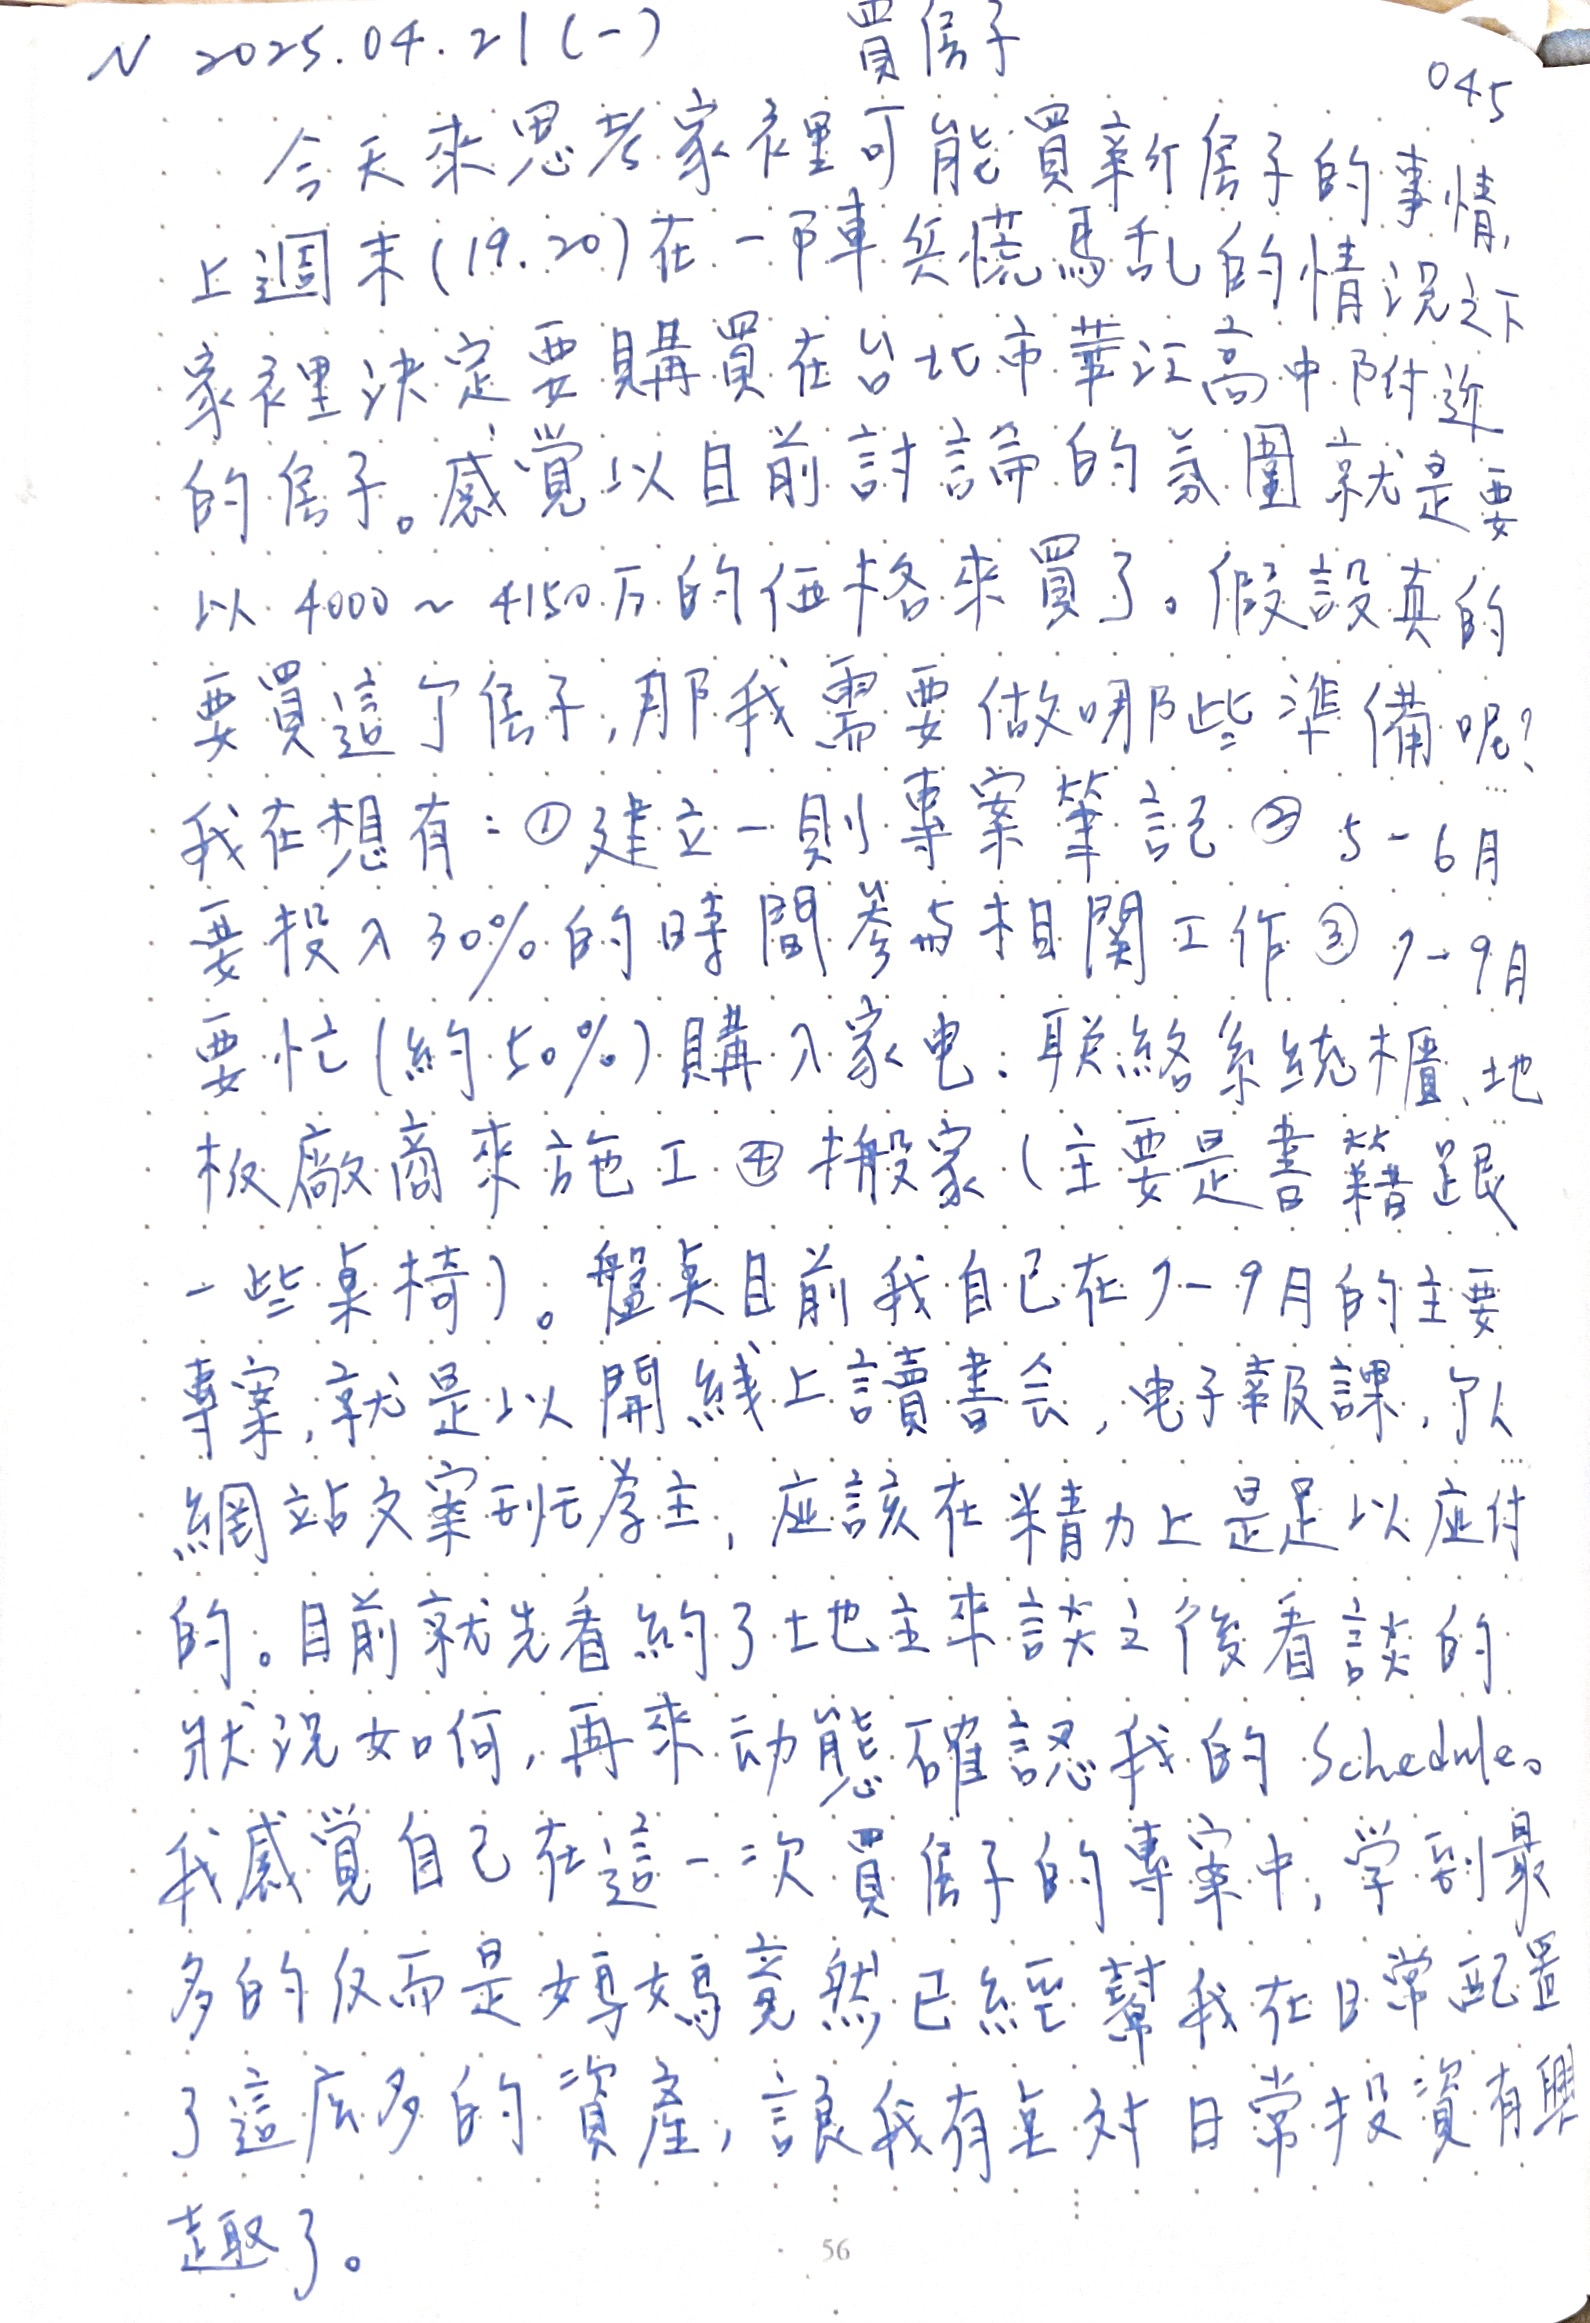 N 2025.04.21(一) 買房子
045
今天來思考家裡可能買新房子的事情,
上週末(19.20)在一陣兵慌馬乱的情況之下
家裡決定要購買在台北市華江高中附近
的房子。感覺以目前討論的氛圍就是要
以4000~4150万的価格來買了。假設真的
要買這个房子,那我需要做哪些準備呢?
我在想有:①建立一則專案筆記②5-6月
要投入30%的時間參与相関工作③7-9月
要忙(約50%)購入家电、联絡系統櫃、地
板廠商來施工④搬家(主要是書籍跟
一些桌椅)。盤点目前我自己在7-9月的主要
專案,就是以開綫上讀書会,电子報課,个人
網站文案到為主,应該在精力上是足以应付
的。目前就先看約了地主來談之後看談的
狀況如何,再來动態確認我的Schedule。
我感覺自己在這一次買房子的專案中,学到最
多的反而是媽媽竟然已經幫我在日常配置
了這庅多的資產,讓我有点対日常投資有興
趣了。
56